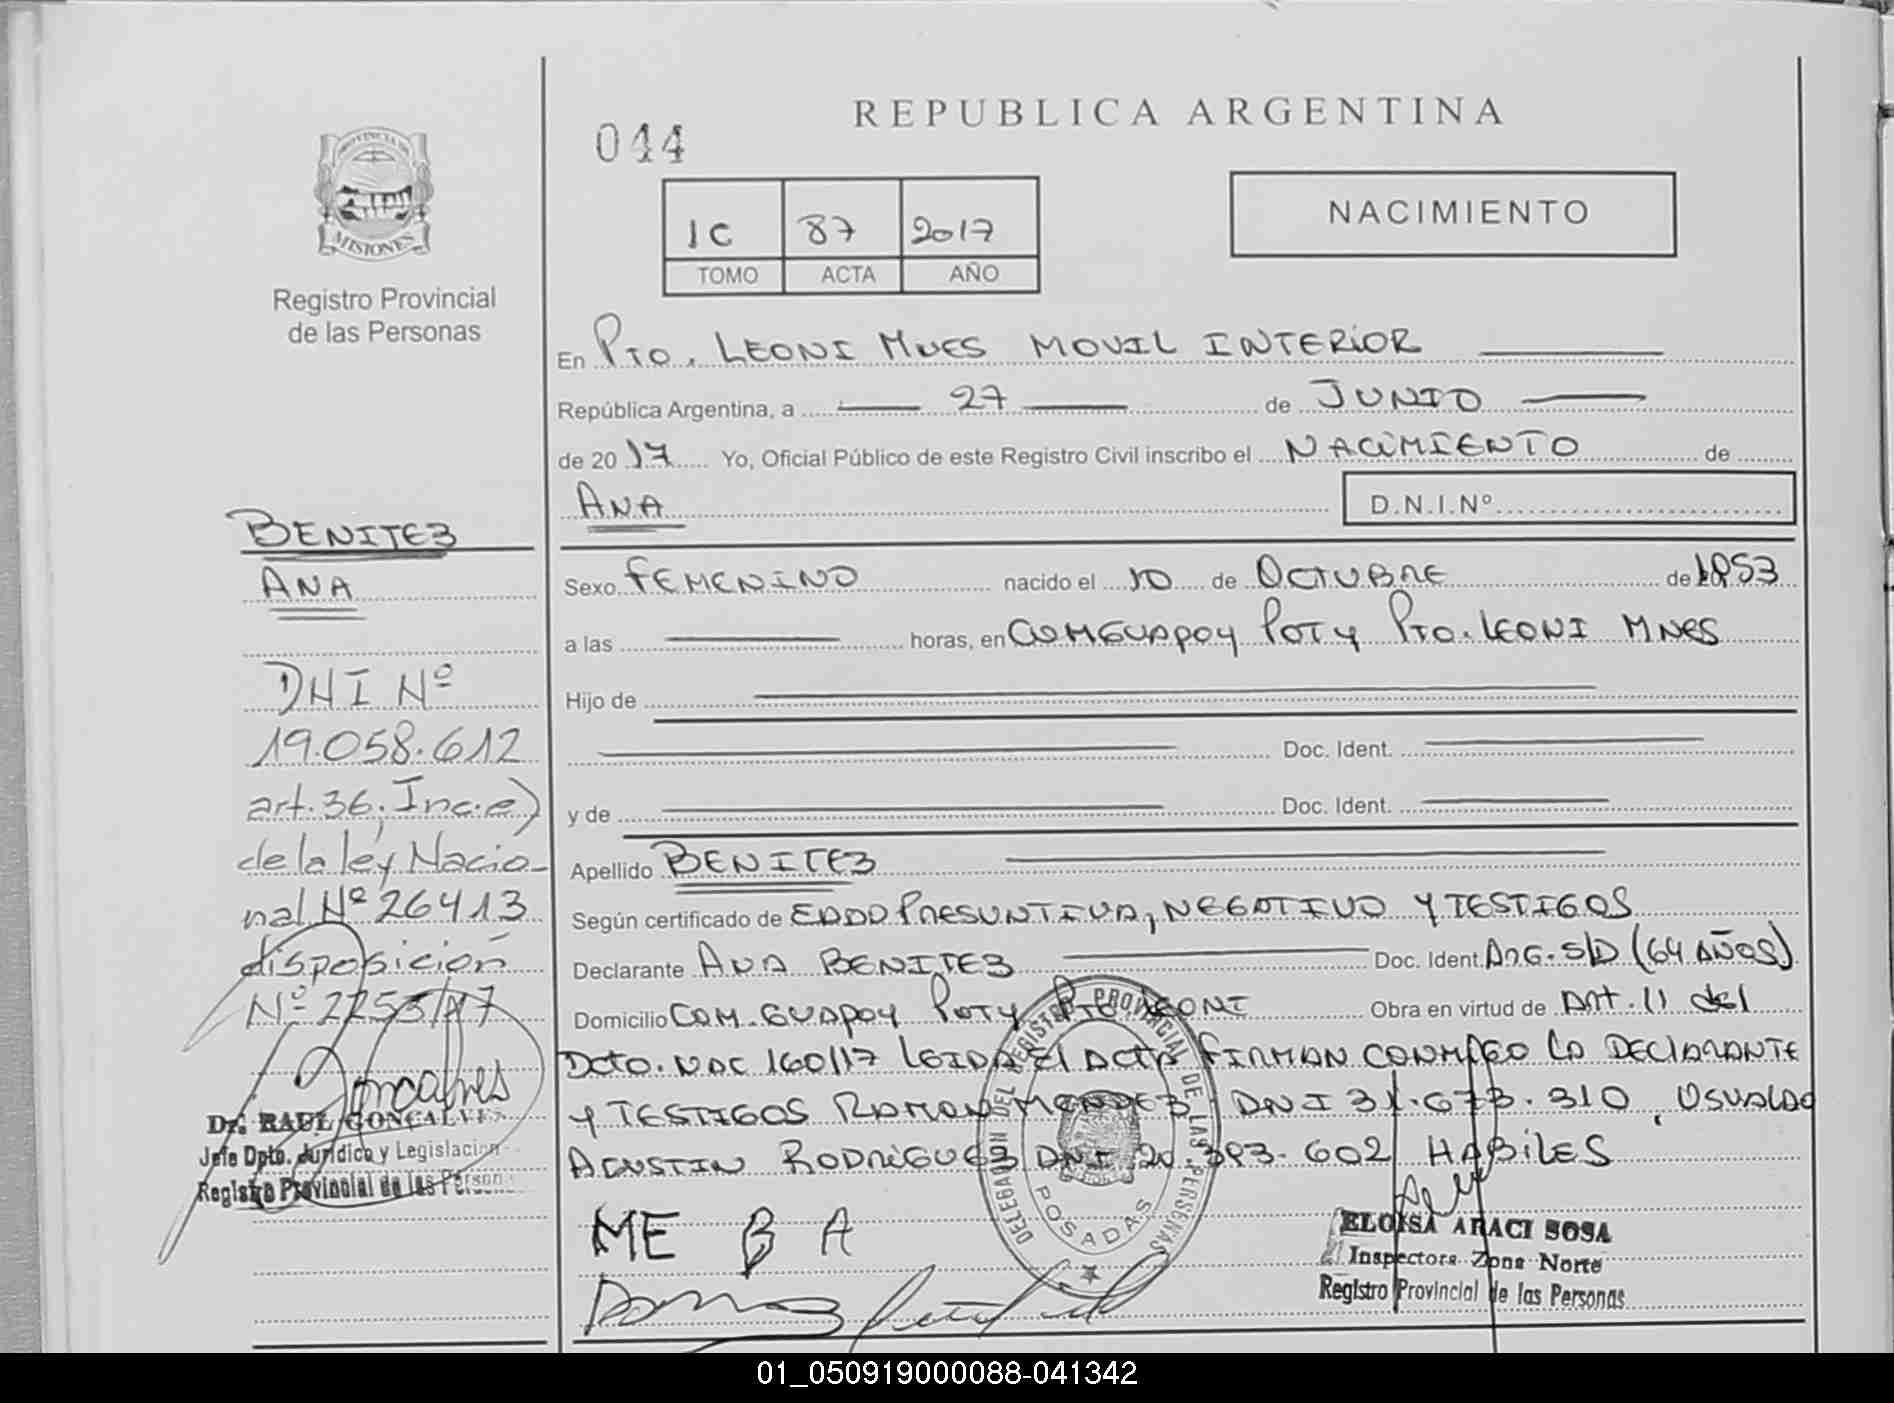 REPUBLICA ARGENTINA
044
PROVINCIA DE
MISIONES
Registro Provincial
de las Personas
1C 87 2017
TOMO ACTA AÑO
NACIMIENTO
En Pto. LEONI MNES MOVIL INTERIOR
República Argentina, a 27 de JUNIO
de 2017 Yo, Oficial Público de este Registro Civil inscribo el NACIMIENTO de
ANA
D.N.I.Nº
Sexo FEMENINO nacido el 10 de OCTUBRE de 1953
a las horas, en COM GUAPOY POTY PTO. LEONI MNES
Hijo de
Doc. Ident.
y de Doc. Ident.
Apellido BENITEZ
Según certificado de EDAD PRESUNTIVA, NEGATIVO Y TESTIGOS
Declarante ANA BENITEZ Doc. Ident. ARG. S/D (64 AÑOS)
Domicilio COM. GUAPOY POTY PTO LEONI Obra en virtud de Art. 11 del
Dcto. NAC 160/17 LEIDA El ACTA FIRMAN CONMIGO LA DECLARANTE
Y TESTIGOS RAMON MENDEZ DNI 31.673.310, OSVALDO
AGUSTIN RODRIGUEZ DNI 20.393.602 HABILES
ME B A
BENITEZ
ANA
DNI Nº
19.058.612
art.36.Inc.e)
de la ley Nacio-
nal Nº 26413
disposición
Nº 2253/17
Goncalves
Dr. RAUL GONCALVES
Jefe Dpto. Jurídico y Legislacion
Registro Provincial de las Personas
DELEGACION DEL REGISTRO PROVINCIAL DE LAS PERSONAS
POSADAS
ELOISA ARACI SOSA
Inspectora Zona Norte
Registro Provincial de las Personas
01_050919000088-041342